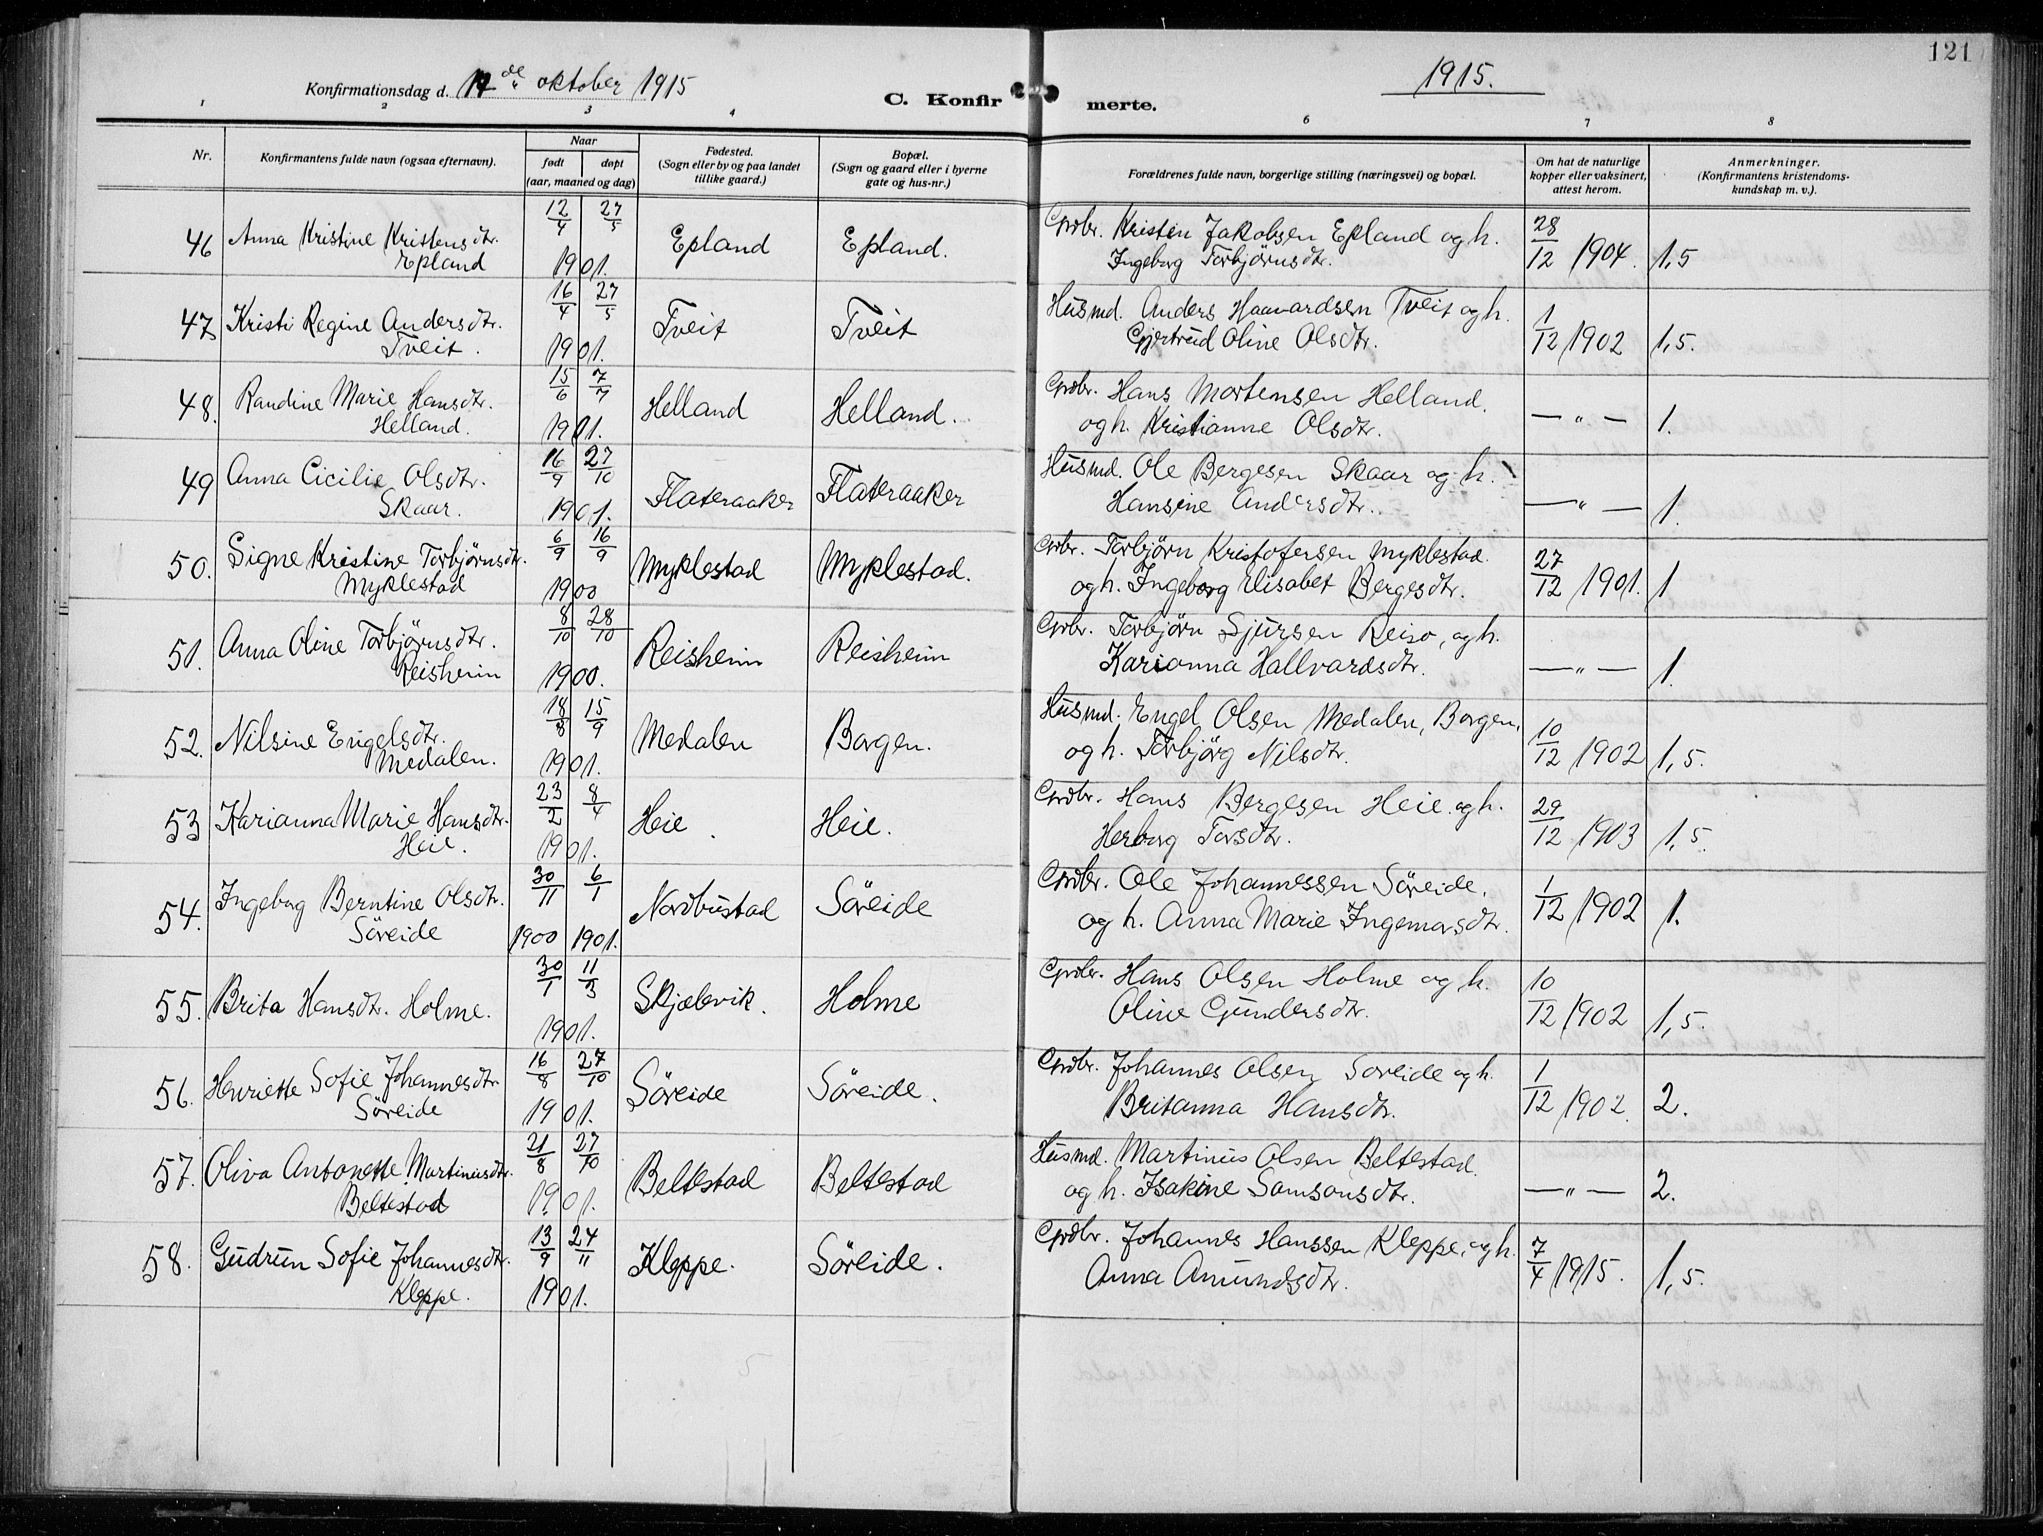 121
Konfirmationsdag d. 17 de oktober 1915
1915.
C. Konfirmerte.
1 2 3 4 6 7 8
Nr.
Konfirmantens fulde navn (ogsaa efternavn).
Naar
født døpt
(aar, maaned og dag)
Fødested.
(Sogn eller by og paa landet
tillike gaard.)
Bopæl.
(Sogn og gaard eller i byerne
gate og hus-nr.)
Forældrenes fulde navn, borgerlige stilling (næringsvei) og bopæl.
Om hat de naturlige
kopper eller vaksinert,
attest herom.
Anmerkninger.
(Konfirmantens kristendoms-
kundskap m. v.).
46 Anna Kristine Kristensdtr. 12/4 27/5 Epland Epland. Grdbr. Kristen Jakobsen Epland og h. 28/12 1904. 1,5
Epland 1901. Ingeborg Torbjörnsdtr.
47 Kristi Regine Andersdtr. 16/4 27/5 Tveit Tveit Husmd. Anders Haavardsen Tveit og h. 1/12 1902 1,5.
Tveit. 1901. Gjertrud Oline Olsdtr.
48. Randine Marie Hansdtr. 15/6 7/7 Helland Helland. Grdbr. Hans Mortensen Helland. — " — 1.
Helland. 1901. og h. Kristianne Olsdtr.
49 Anna Cicilie Olsdtr. 16/9 27/10 Flateraaker Flateraaker Husmd. Ole Bergesen Skaar og h. — " — 1.
Skaar. 1901. Hansine Andersdtr.
50. Signe Kristine Torbjörnsdtr. 6/9 16/9 Myklestad Myklestad. Grdbr. Torbjörn Kristofersen Myklestad. 27/12 1901. 1
Myklestad 1900 og h. Ingeborg Elisabet Bergesdtr.
51. Anna Oline Torbjörnsdtr. 8/10 28/10 Reisheim Reisheim Grdbr. Torbjörn Sjursen Reiso, og h. — " — 1.
Reisheim 1900. Karianna Hallvardsdtr.
52. Nilsine Engelsdtr. 18/8 15/9 Medalen Borgen. Husmd. Engel Olsen Medalen, Borgen, 10/12 1902 1,5.
Medalen. 1901. og h. Torbjörg Nilsdtr.
53 Karianna Marie Hansdtr. 23/2 8/4 Heie. Heie. Grdbr. Hans Bergesen Heie. og h. 29/12 1903 1,5.
Heie. 1901. Herborg Torsdtr.
54. Ingeborg Berntine Olsdtr. 30/11 6/1 Nordbustad Söreide Grdbr. Ole Johannessen Söreide. 1/12 1902 1.
Söreide 1900 1901. og h. Anna Marie Ingemarsdtr.
55. Brita Hansdtr. Holme. 30/1 11/3 Skjælevik. Holme Grdbr. Hans Olsen Holme og h. 10/12 1902 1,5.
1901. Oline Gundersdtr.
56. Henriette Sofie Johannesdtr. 16/8 27/10 Söreide Söreide. Grdbr. Johannes Olsen Soreide og h. 1/12 1902. 2.
Söreide 1901. Britanna Hansdtr.
57. Oliva Antonette Martinusdtr. 21/8 27/10 Beltestad Beltestad Husmd. Martinus Olsen Beltestad. — " — 2.
Beltestad 1901. og h. Isakine Samsonsdtr.
58. Gudrun Sofie Johannesdtr. 13/9 24/11 Kleppe. Söreide. Grdbr. Johannes Hanssen Kleppe. og h. 7/4 1915. 1,5.
Kleppe. 1901. Anna Amundsdtr.